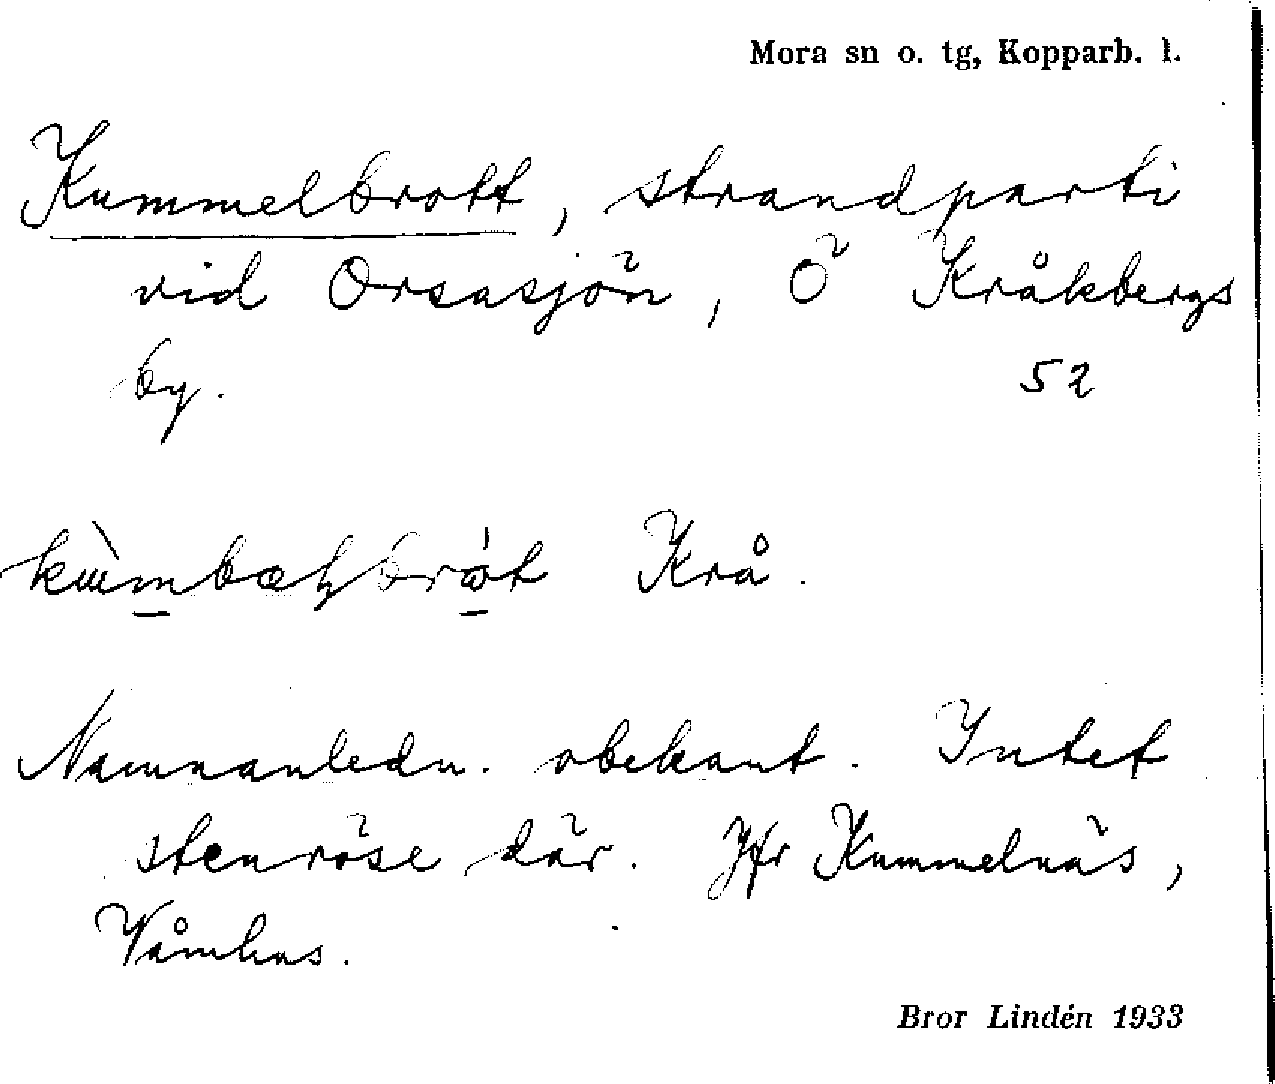 Mora sn o. tg, Kopparb. l.
Kummelbrott, strandparti
vid Orsasjön, Ö Kråkbergs
by. 52
Krå.
Namnanledn. obekant. Intet
stenröse där. Jfr Kummelnäs,
Våmhus.
Bror Lindén 1933